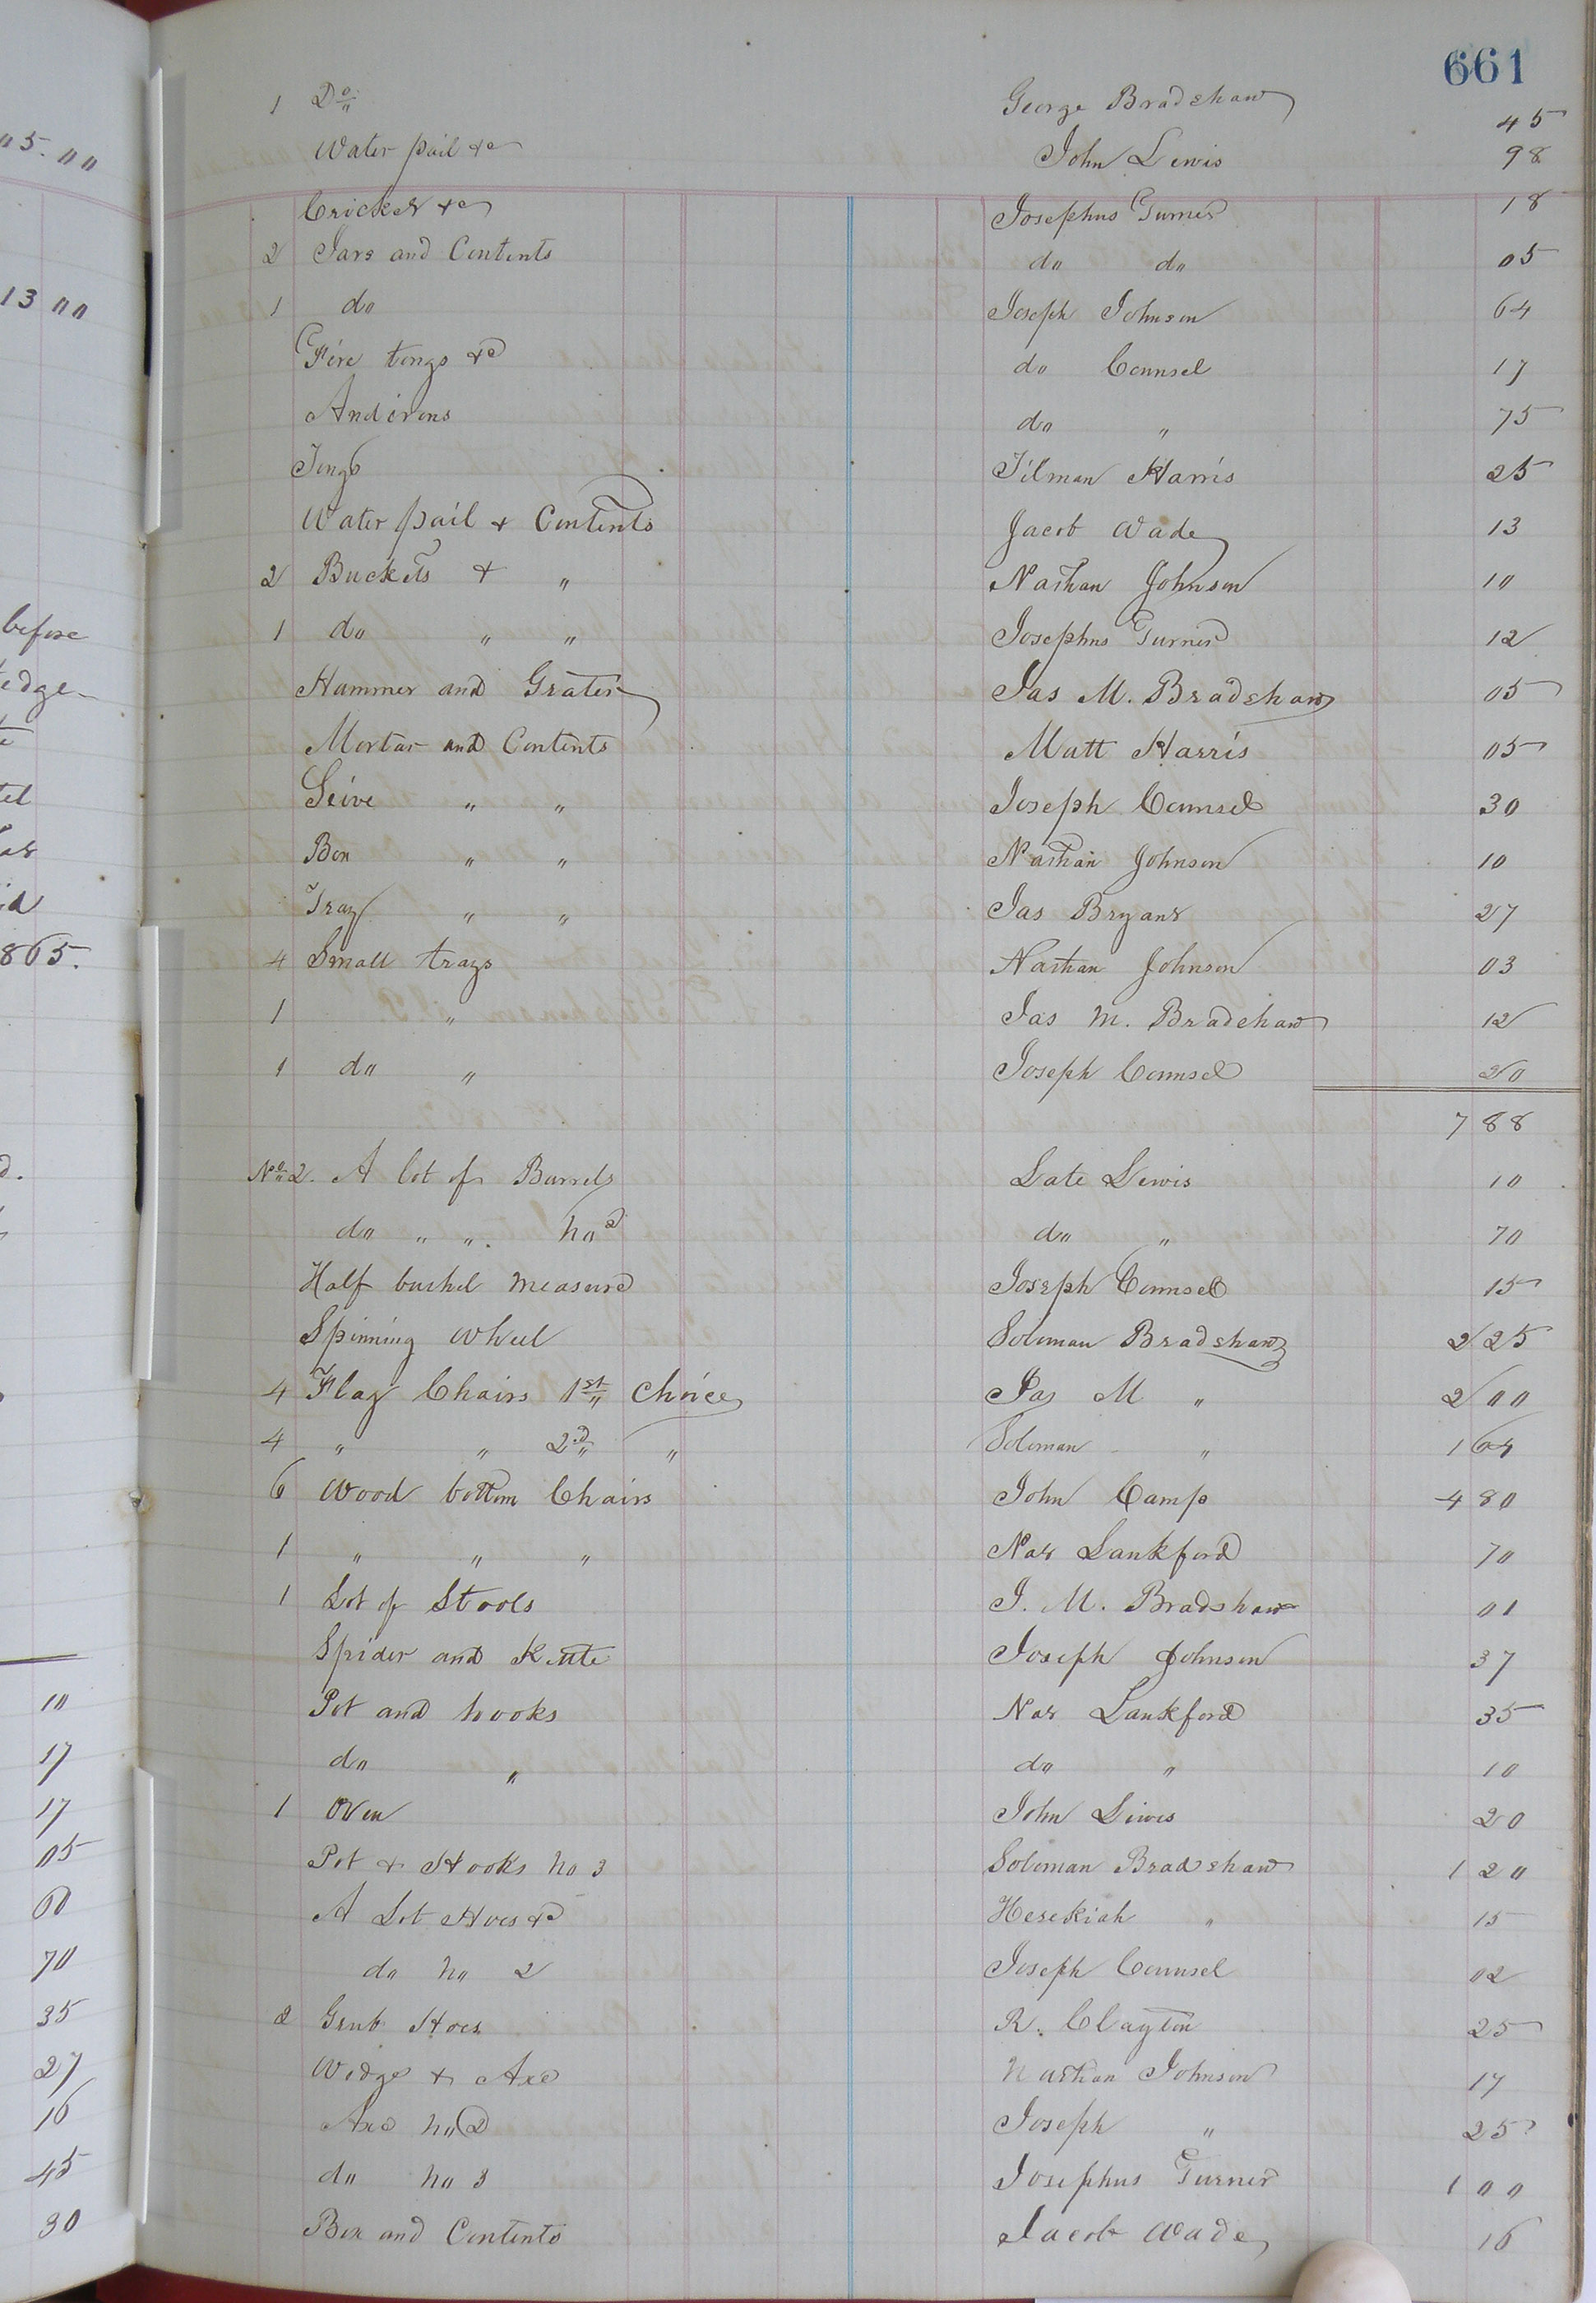 05.00
13 00
before
edge-
tel
as
id
865.
d.
10
17
17
05
60
70
35
27
16
45
30
661
1 Do George Bradshaw 45
Water pail &c John Lewis 98
Cricket &c Josephus Turner 18
2 Jars and Contents do do 05
1 do Joseph Johnson 64
Fire tongs &c do Counsel 17
Andirons do " 75
Tongs Tilman Harris 25
Water pail & Contents Jacob Wade 13
2 Buckets & " Nathan Johnson 10
1 do " " Josephus Turner 12
Hammer and Grater Jas M. Bradshaw 05
Mortar and Contents Matt Harris 05
Seive " " Joseph Counsel 30
Box " " Nathan Johnson 10
Tray " " Jas Bryant 27
4 Small trays Nathan Johnson 03
1 " Jas M. Bradshaw 12
1 do " Joseph Counsel 20
7 88
No 2. A lot of Barrels Late Lewis 10
do " " no 2 do " 70
Half bushel measure Joseph Counsel 15
Spinning Wheel Soloman Bradshaw 2 25
4 Flag Chairs 1st Choice Jas M " 2 00
4 " " 2d " Soloman " 1 64
6 Wood bottom Chairs John Camp 4 80
1 " " " Nat Lankford 70
1 Lot of Stools J. M. Bradshaw 01
Spider and Kettle Joseph Johnson 37
Pot and hooks Nat Lankford 35
do " do " 10
1 Oven John Lewis 20
Pot & Hooks no 3 Soloman Bradshaw 1 20
A Lot Hoes &c Hesekiah " 15
do no 2 Joseph Counsel 02
2 Grub Hoes R. Clayton 25
Wedge & Axe Nathan Johnson 17
Axe no 2 Joseph " 25
do no 3 Josephus Turner 1 00
Box and Contents Jacob Wade 16